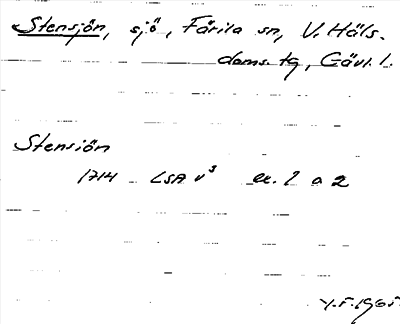 Stensjön, sjö, Färila sn, V. Häls.
doms. tg, Gävl. l.
Stensiön
1714 LSA v³ ex. 1 o 2
Y.F. 1965